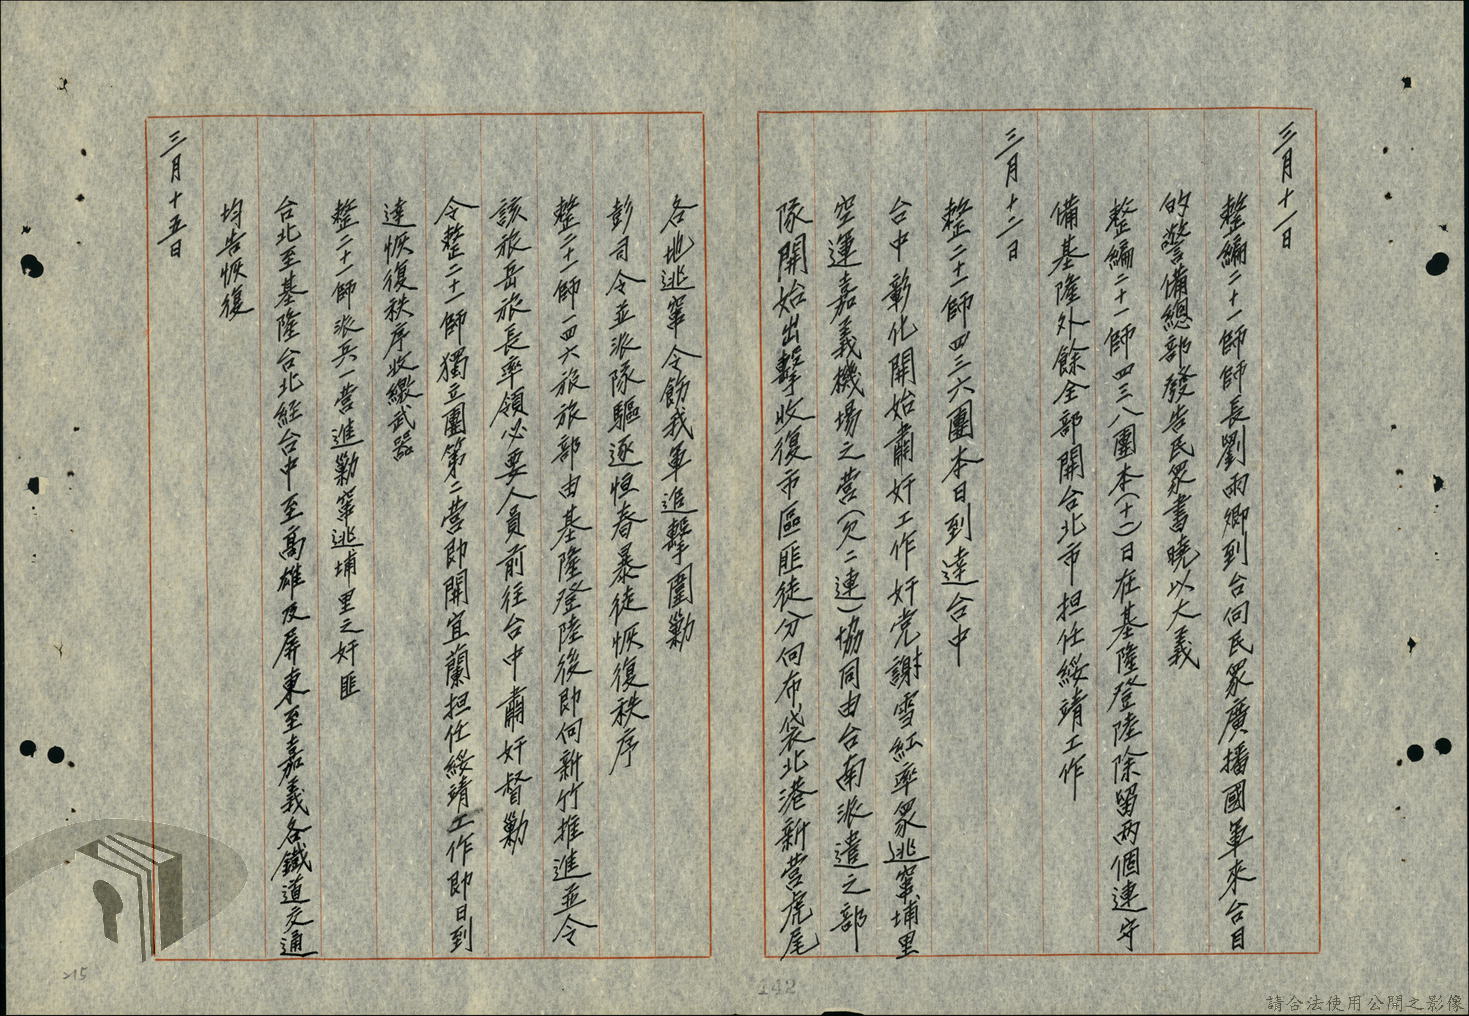 三月十一日
整編二十一師師長劉雨卿到台向民眾廣播國軍來台目
的警備總部發告民眾書曉以大義
整編二十一師四三八團本(十一)日在基隆登陸除留兩個連守
備基隆外餘全部開台北市担任綏靖工作
三月十二日
整二十一師四三六團本日到達台中
台中彰化開始肅奸工作奸党謝雪紅率眾逃竄埔里
空運嘉義機場之營(欠二連)協同由台南派遣之部
隊開始出擊收復市區匪徒分向布袋北港新營虎尾
各地逃竄令飭我軍追擊圍勦
彭司令並派隊驅逐恒春暴徒恢復秩序
整二十一師一四六旅旅部由基隆登陸後即向新竹推進並令
該旅岳旅長率領必要人員前往台中肅奸督勦
令整二十一師獨立團第二營即開宜蘭担任綏靖工作即日到
達恢復秩序收繳武器
整二十一師派兵一營進勦竄逃埔里之奸匪
台北至基隆台北經台中至高雄及屏東至嘉義各鐵道交通
均告恢復
三月十五日
215
142
請合法使用公開之影像